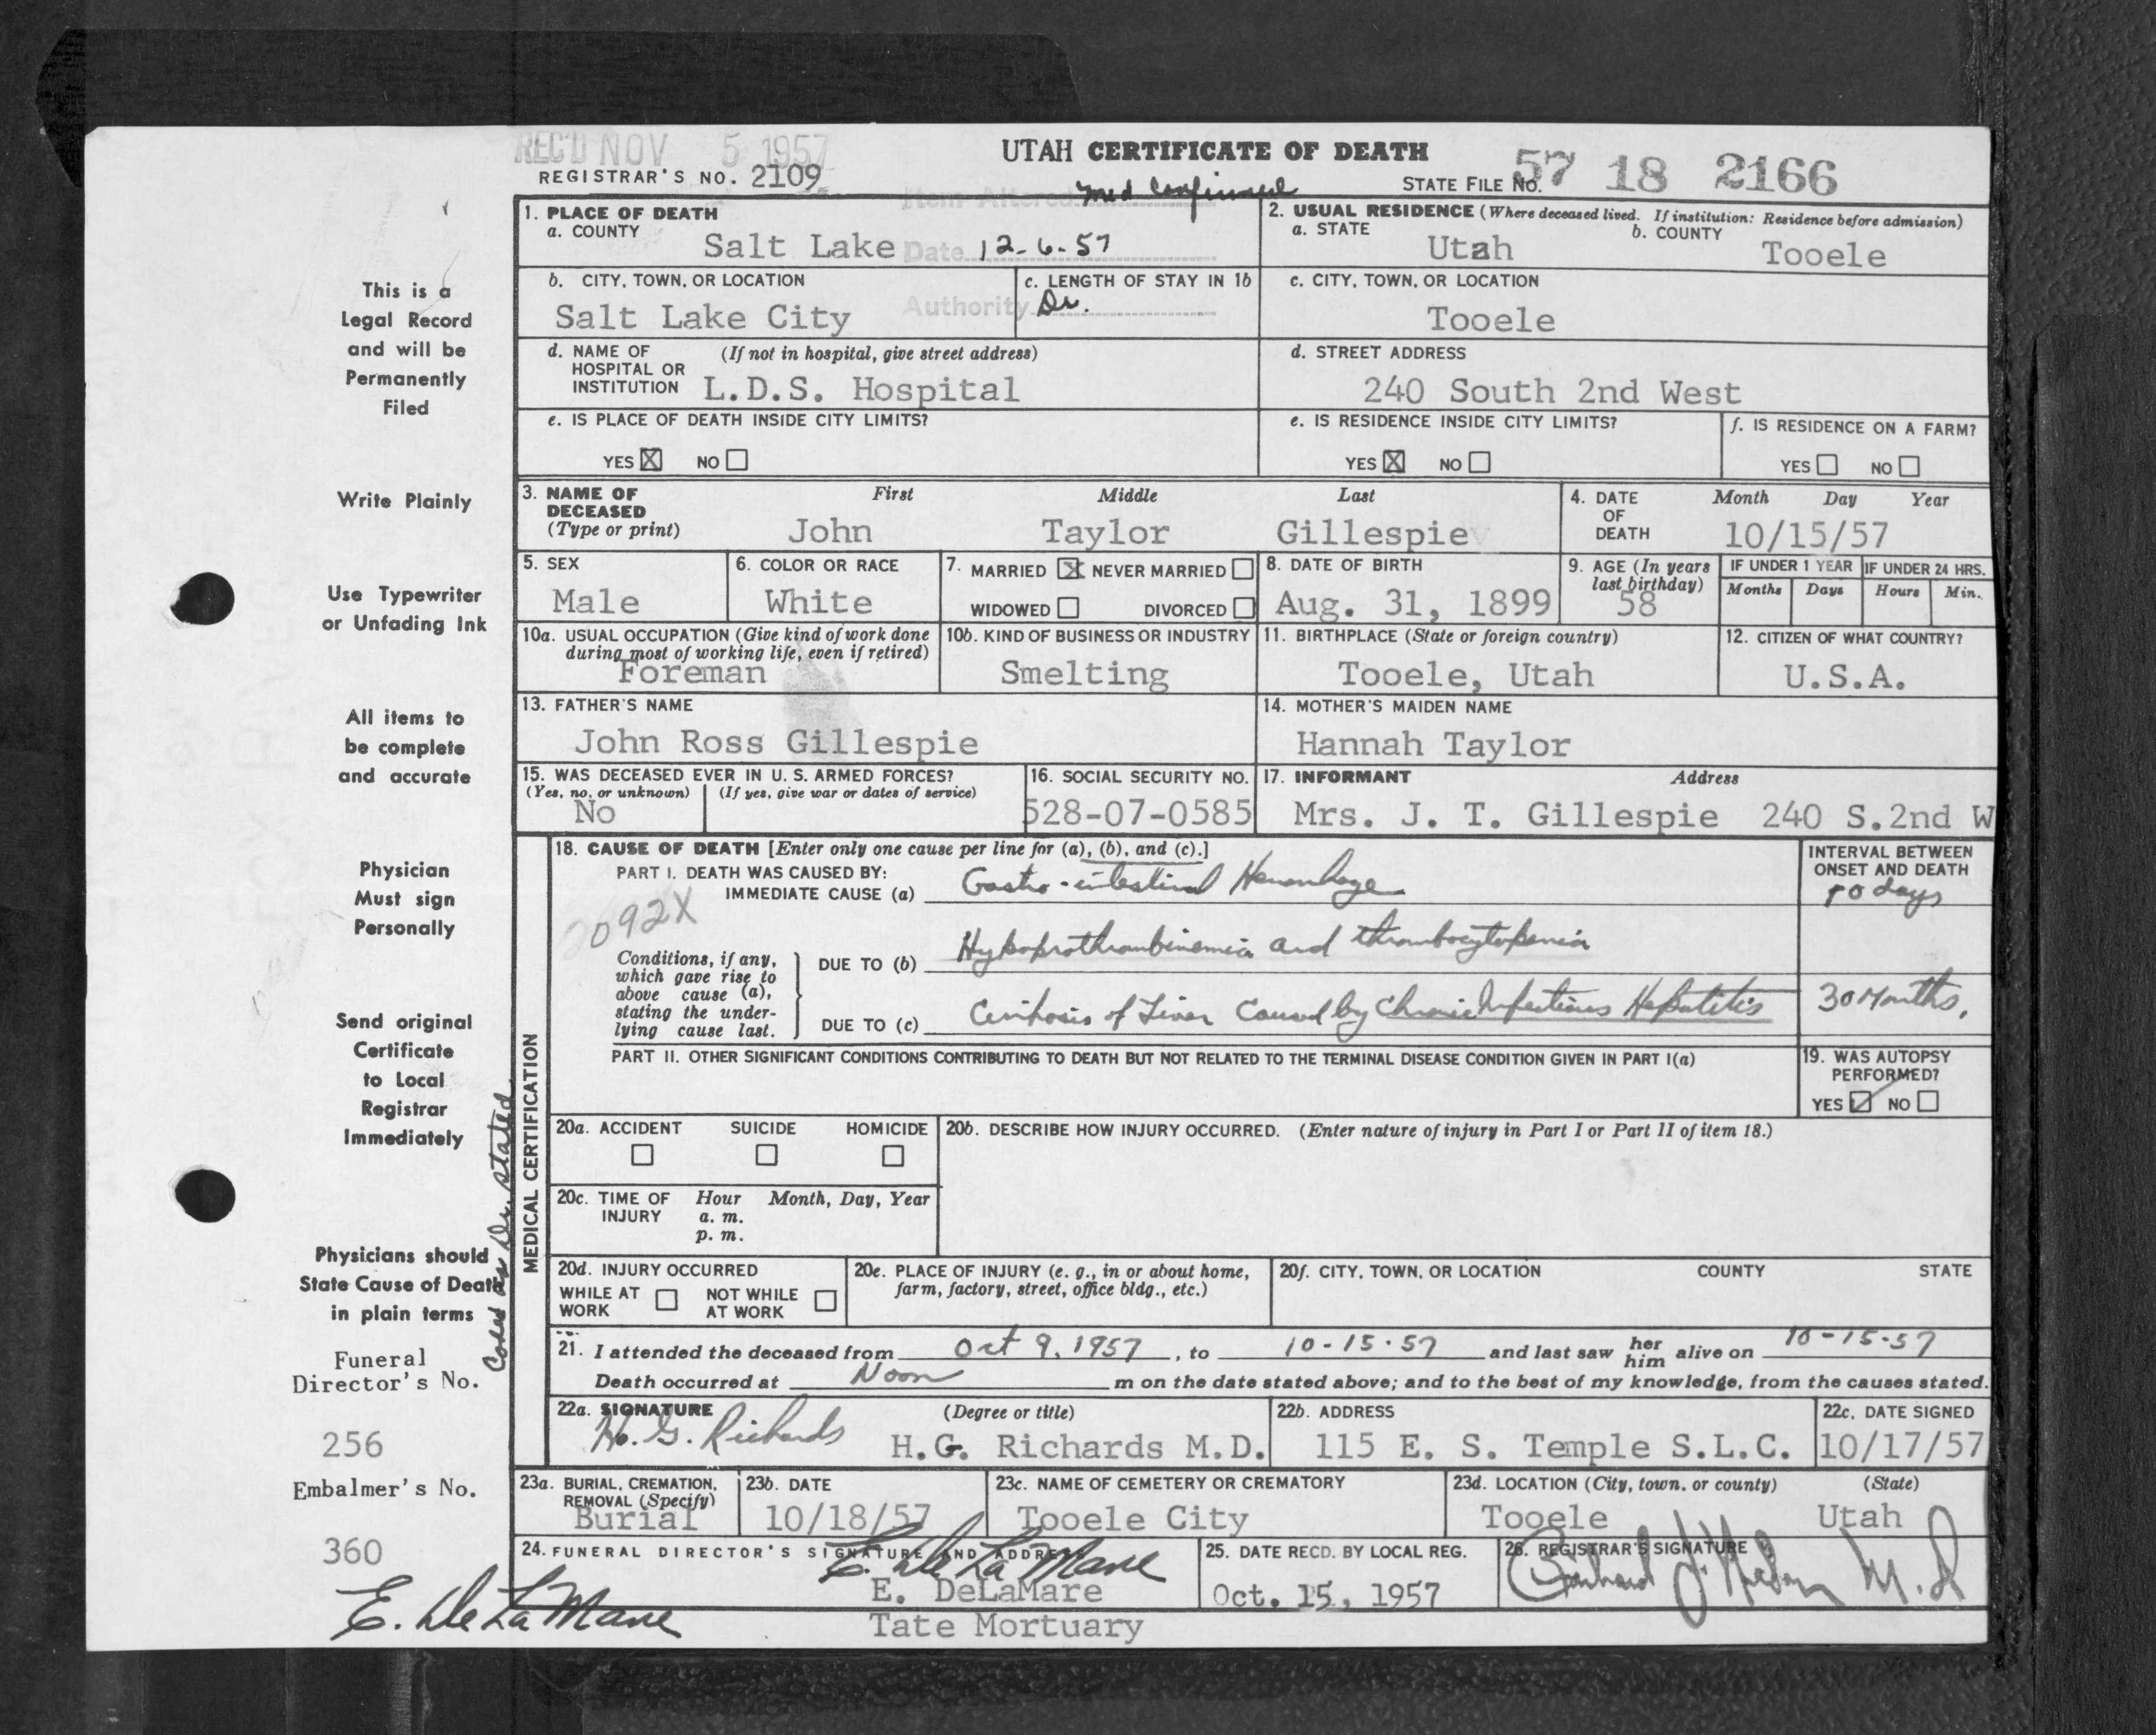 REC'D NOV 5 1957
UTAH CERTIFICATE OF DEATH
REGISTRAR'S NO. 2109
STATE FILE NO. 57 18 2166
Item Altered Med Confirmed
Date 12-6-57
Authority Dr.
1. PLACE OF DEATH
a. COUNTY Salt Lake
2. USUAL RESIDENCE (Where deceased lived. If institution: Residence before admission)
a. STATE Utah b. COUNTY Tooele
b. CITY, TOWN, OR LOCATION Salt Lake City
c. LENGTH OF STAY IN 1b
c. CITY, TOWN, OR LOCATION Tooele
d. NAME OF HOSPITAL OR INSTITUTION (If not in hospital, give street address) L.D.S. Hospital
d. STREET ADDRESS 240 South 2nd West
e. IS PLACE OF DEATH INSIDE CITY LIMITS?
YES ☒ NO ☐
e. IS RESIDENCE INSIDE CITY LIMITS?
YES ☒ NO ☐
f. IS RESIDENCE ON A FARM?
YES ☐ NO ☐
3. NAME OF DECEASED (Type or print)
First Middle Last
John Taylor Gillespie
4. DATE OF DEATH Month Day Year
10/15/57
5. SEX Male
6. COLOR OR RACE White
7. MARRIED ☒ NEVER MARRIED ☐
WIDOWED ☐ DIVORCED ☐
8. DATE OF BIRTH Aug. 31, 1899
9. AGE (In years last birthday) 58
IF UNDER 1 YEAR Months Days
IF UNDER 24 HRS. Hours Min.
10a. USUAL OCCUPATION (Give kind of work done during most of working life, even if retired) Foreman
10b. KIND OF BUSINESS OR INDUSTRY Smelting
11. BIRTHPLACE (State or foreign country) Tooele, Utah
12. CITIZEN OF WHAT COUNTRY? U.S.A.
13. FATHER'S NAME John Ross Gillespie
14. MOTHER'S MAIDEN NAME Hannah Taylor
15. WAS DECEASED EVER IN U. S. ARMED FORCES?
(Yes, no, or unknown) (If yes, give war or dates of service)
No
16. SOCIAL SECURITY NO. 528-07-0585
17. INFORMANT Address
Mrs. J. T. Gillespie 240 S.2nd W
MEDICAL CERTIFICATION
18. CAUSE OF DEATH [Enter only one cause per line for (a), (b), and (c).]
PART I. DEATH WAS CAUSED BY:
IMMEDIATE CAUSE (a) Gastro-intestinal Hemorrhage
092X
Conditions, if any, which gave rise to above cause (a), stating the underlying cause last.
DUE TO (b) Hypoprothrombinemia and thrombocytopenia
DUE TO (c) Cirrhosis of Liver Caused by Chronic Infectious Hepatitis
INTERVAL BETWEEN ONSET AND DEATH
10 days
30 Months.
PART II. OTHER SIGNIFICANT CONDITIONS CONTRIBUTING TO DEATH BUT NOT RELATED TO THE TERMINAL DISEASE CONDITION GIVEN IN PART I(a)
19. WAS AUTOPSY PERFORMED?
YES ☑ NO ☐
20a. ACCIDENT SUICIDE HOMICIDE
☐ ☐ ☐
20b. DESCRIBE HOW INJURY OCCURRED. (Enter nature of injury in Part I or Part II of item 18.)
20c. TIME OF INJURY Hour Month, Day, Year
a. m.
p. m.
20d. INJURY OCCURRED
WHILE AT WORK ☐ NOT WHILE AT WORK ☐
20e. PLACE OF INJURY (e. g., in or about home, farm, factory, street, office bldg., etc.)
20f. CITY, TOWN, OR LOCATION COUNTY STATE
21. I attended the deceased from Oct 9, 1957, to 10-15-57 and last saw her him alive on 10-15-57
Death occurred at Noon m on the date stated above; and to the best of my knowledge, from the causes stated.
22a. SIGNATURE (Degree or title)
H. G. Richards H.G. Richards M.D.
22b. ADDRESS 115 E. S. Temple S.L.C.
22c. DATE SIGNED 10/17/57
23a. BURIAL, CREMATION, REMOVAL (Specify) Burial
23b. DATE 10/18/57
23c. NAME OF CEMETERY OR CREMATORY Tooele City
23d. LOCATION (City, town, or county) (State)
Tooele Utah
24. FUNERAL DIRECTOR'S SIGNATURE AND ADDRESS
E. DeLaMare
E. DeLaMare
Tate Mortuary
25. DATE RECD. BY LOCAL REG. Oct. 15, 1957
26. REGISTRAR'S SIGNATURE
M.D
This is a
Legal Record
and will be
Permanently
Filed
Write Plainly
Use Typewriter
or Unfading Ink
All items to
be complete
and accurate
Physician
Must sign
Personally
Send original
Certificate
to Local
Registrar
Immediately
Physicians should
State Cause of Death
in plain terms
Coded as Dr. stated
Funeral
Director's No.
256
Embalmer's No.
360
E. DeLaMare